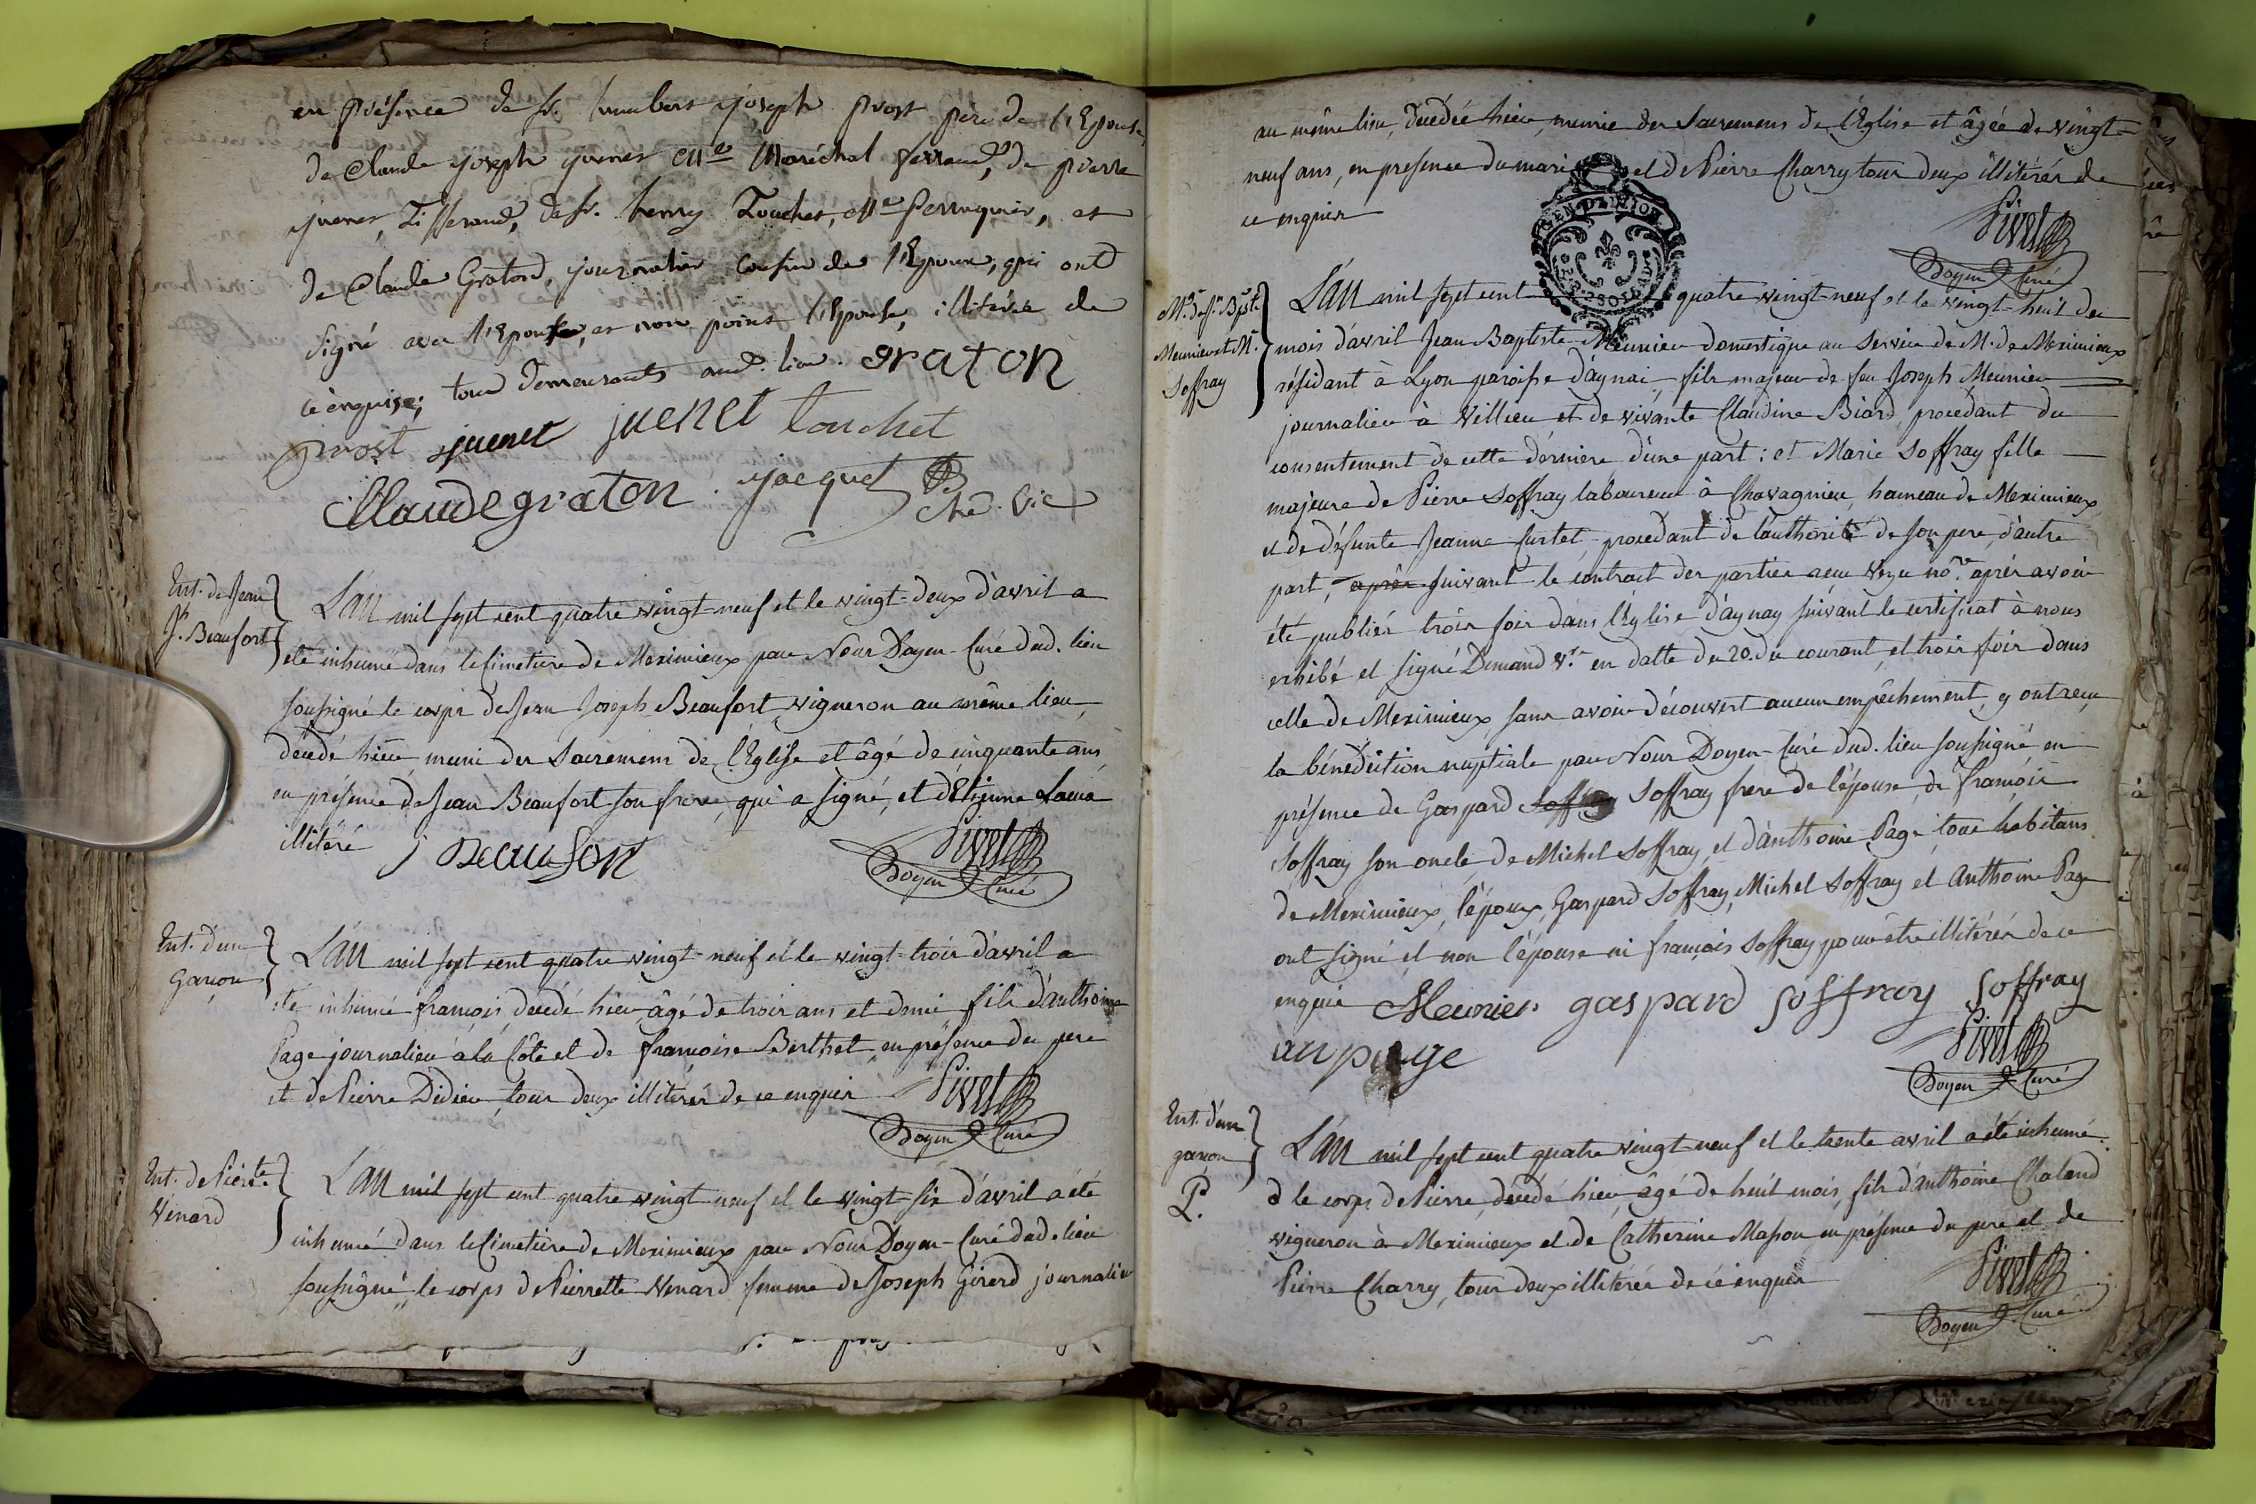 en présence de Sr. humbert joseph prost père de l'Epouse,
de Claude joseph juenet Me Maréchal ferrand, de pierre
juenet, Tisserand, de Sr. henry Touchet, Me perruquier, et
de Claude Graton, journalier cousin de l'Epoux, qui ont
signé avec l'Epoux, et non point l'Epouse, illitérée de
ce enquise; tous demeurants aud. lieu. graton
prost juenet juenet touchet
Claude graton jacquet
che. vic
Ent. de Jean
Jh. Beaufort
L'an mil sept cent quatre vingt-neuf et le vingt-deux d'avril a
eté inhumé dans le Cimetiere de Meximieux par Nous Doyen-Curé dud. lieu
soussigné le corps de Jean Joseph Beaufort vigneron au même lieu,
decedé hier, muni des Sacremens de l'Eglise et âgé de cinquante ans,
en présence de Jean Beaufort son frere, qui a signé, et d'Etienne
illitéré j Beaufort Pivet
Doyen Curé
Ent. d'un
Garçon
L'an mil sept cent quatre vingt-neuf et le vingt-trois d'avril a
eté inhumé françois, decedé hier âgé de trois ans et demi fils d'anthoine
Page journalier à la Côte et de françoise Berthet, en présence du pere
et de Pierre Didier, tous deux illitérés de ce enquis Pivet
Doyen Curé
Ent. de Pierrte
Venard
L'an mil sept cent quatre vingt neuf et le vingt-six d'avril a été
inhumé dans le Cimetiere de Meximieux par Nous Doyen-Curé dud. lieu
soussigné, le corps de Pierrette Venard femme de Joseph Girerd journalier
au même lieu, decedée hier, munie des Sacremens de l'Eglise et âgée de vingt-
neuf ans, en présence du mari et de Pierre Charry tous deux illitérés de
ce enquis
Pivet
Doyen Curé
GEN. D'LITION
Mge de Jn. Bpste
Meunier et M.
Soffray
L'an mil sept cent quatre-vingt-neuf et le vingt-huit du
mois d'avril Jean Baptiste Meunier domestique au service de M. de Meximieux
résidant à Lyon paroisse d'aynai, fils majeur de feu Joseph Meunier
journalier à Villieu et de vivante Claudine Biard, procédant du
consentement de cette dérniere d'une part: et Marie Soffray fille
majeure de Pierre Soffray laboureur à Chavagnieu, hameau de Meximieux
et de défunte Jeanne Curtet, procedant de l'authorité de son pere, d'autre
part, après suivant le contract des parties reçu no.re après avoir
été publiés trois fois dans l'Eglise d'aynay suivant le certificat à nous
exhibé et signé Dimand v.re en datte du 20. du courant, et trois fois dans
celle de Meximieux sans avoir découvert aucun empêchement, y ont reçu
la bénédiction nuptiale par Nous Doyen-Curé dud. lieu soussigné en
présence de Gaspard Soffray Soffray frere de l'épouse, de françois
Soffray son oncle, de Michel Soffray, et d'anthoine Page, tous habitans
de Meximieux, l'époux, Gaspard Soffray, Michel Soffray et Anthoine Page
ont signé et non l'épouse ni françois Soffray pour être illitérés de ce
enquis Meunier gaspard soffray soffray
an page Pivet
Doyen Curé
Ent. d'un
garçon
P.
L'an mil sept cent quatre vingt-neuf et le trente avril a été inhumé
le corps de Pierre, decedé hier, âgé de huit mois, fils d'anthoine Chaland
vigneron à Meximieux et de Catherine Masson, en présence du pere et de
Pierre Charry, tous deux illitérés de ce enquis
Pivet
Doyen Curé